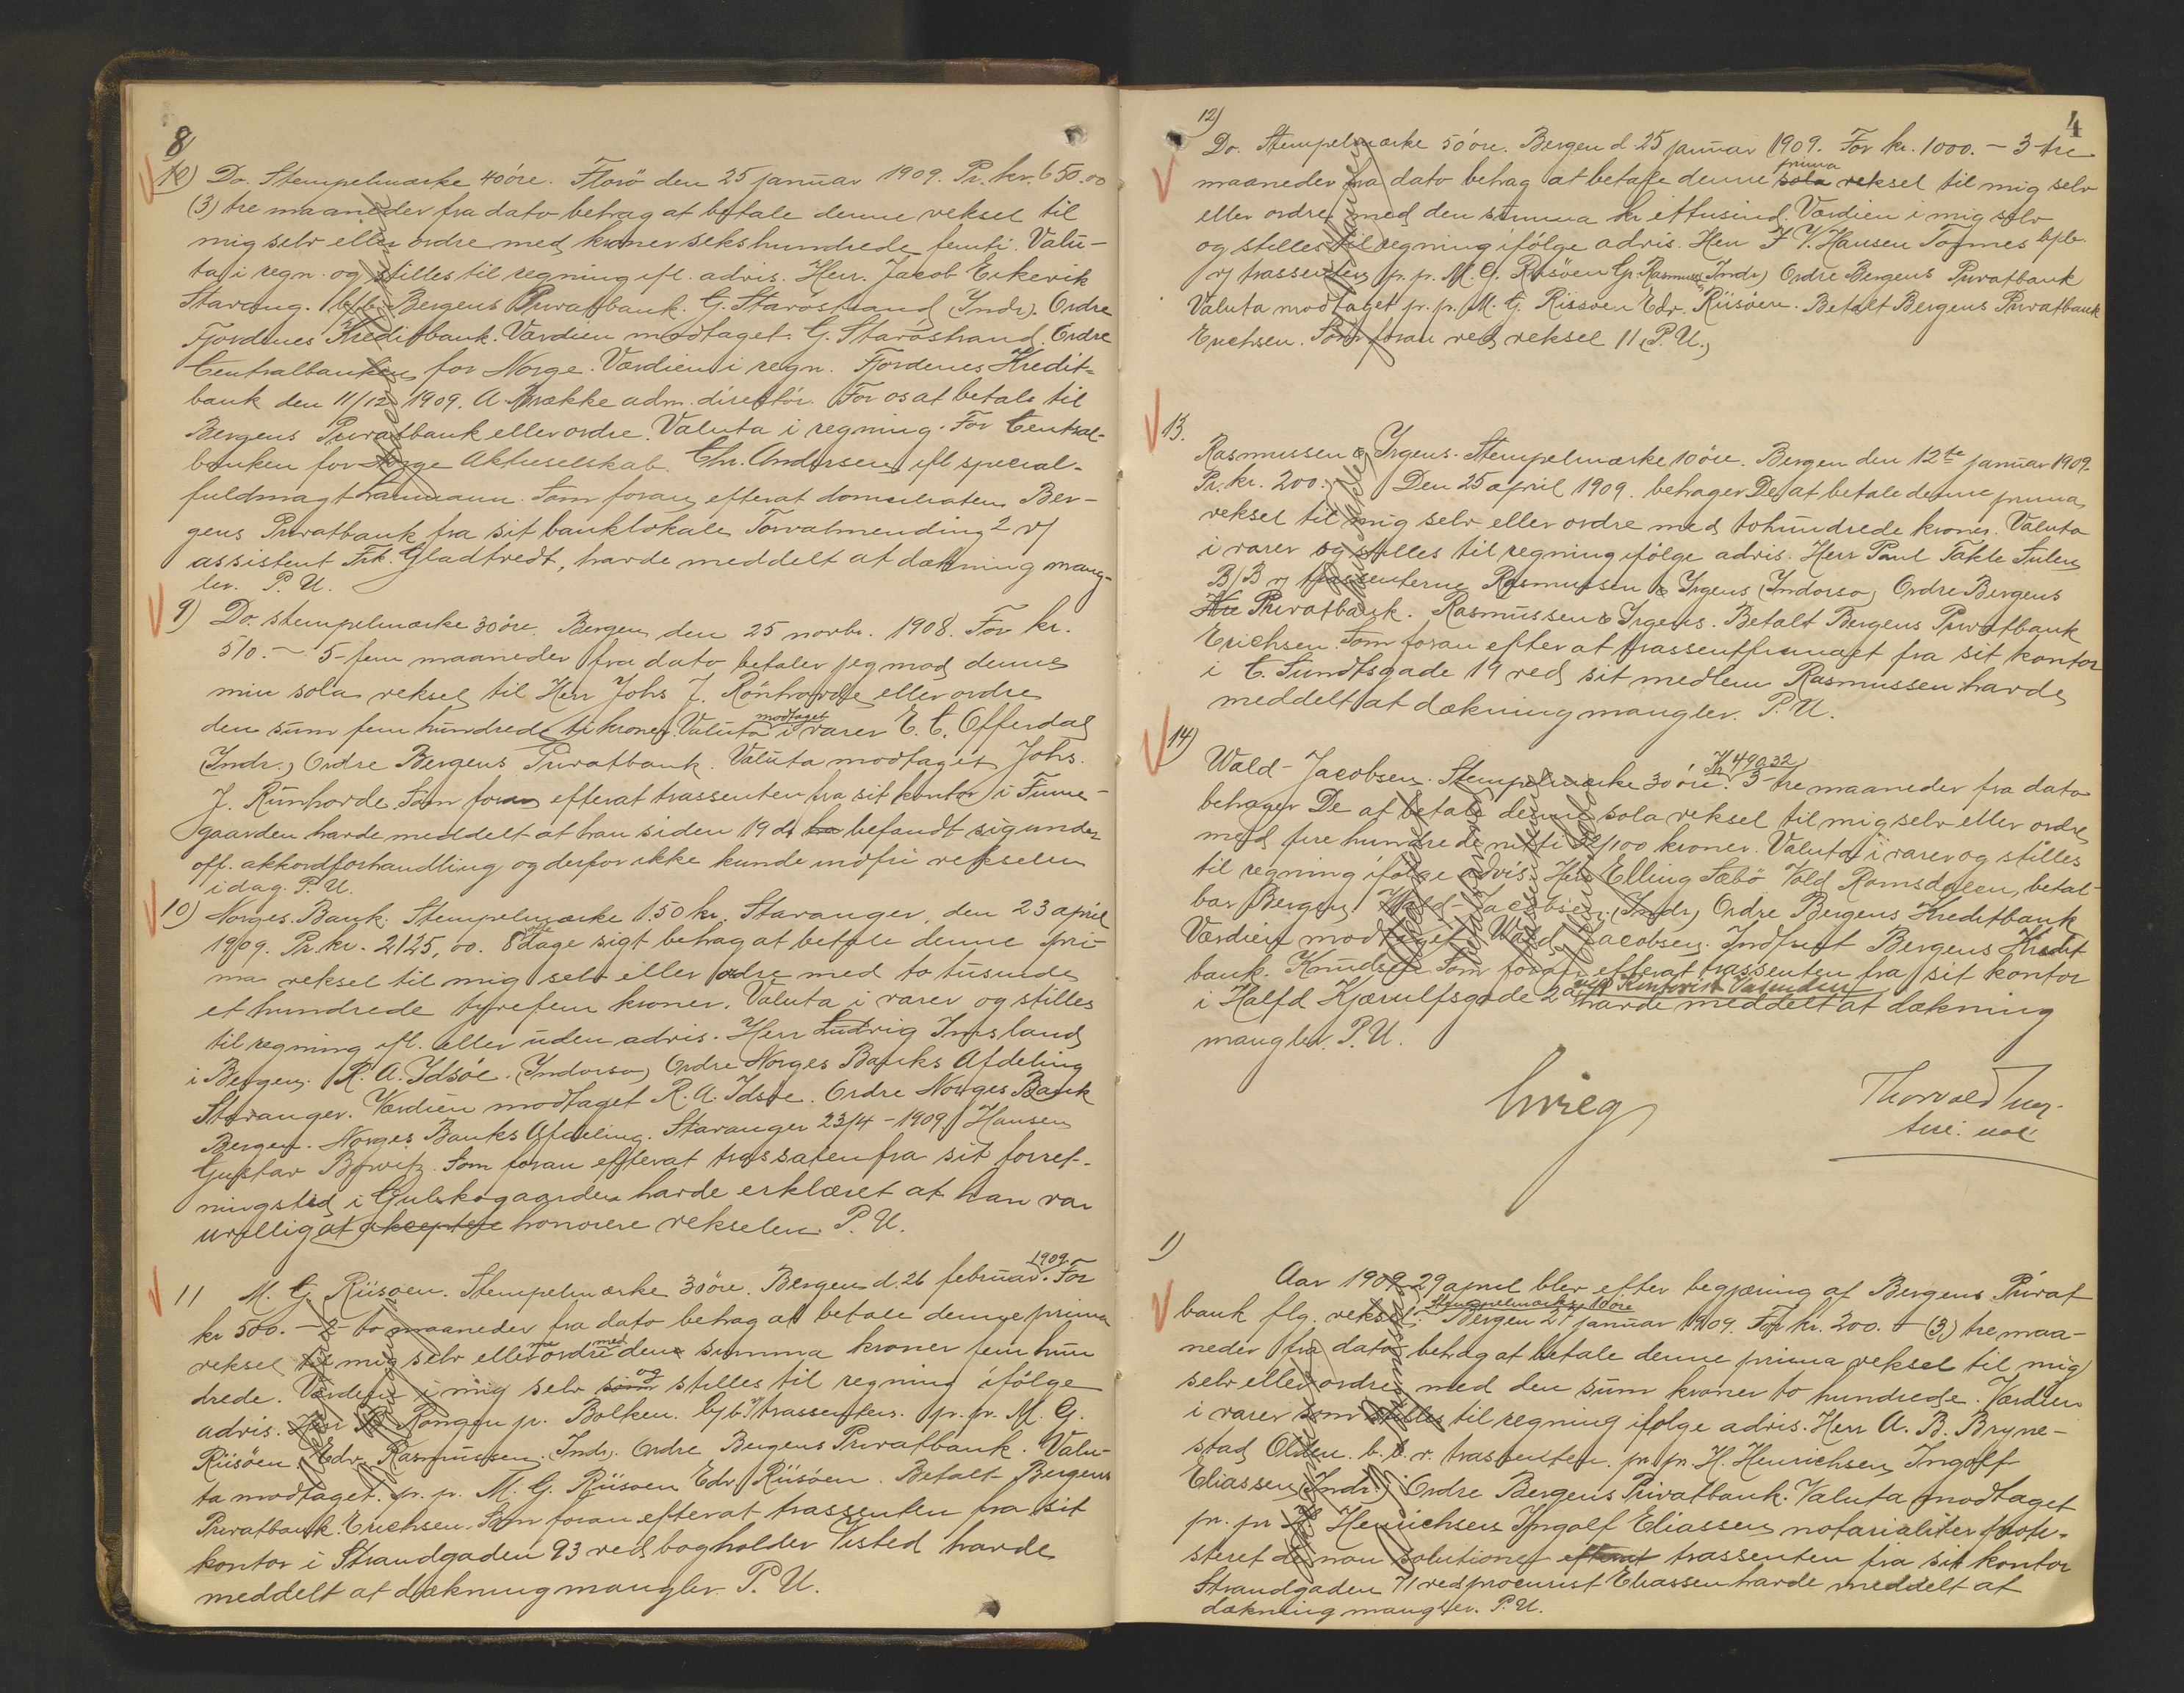 8
10) Do. Stempelmærke 40 öre. Florö den 25 januar 1909. Pr. kr. 650.00
(3) tre maaneder fra dato behag at betale denne veksel til
mig selv eller ordre med kroner sekshundrede femti. Valu-
ta i regn. og stilles til regning ifl. advis. Herr. Jacob Eikevik
Stavang. Bergens Privatbank. G. Staröstrand (Indr). Ordre
Fjordenes Kreditbank. Værdien modtaget. G. Staröstrand. Ordre
Centralbanken for Norge. Værdien i regn. Fjordenes Kredit-
bank den 11/12 1909. A. Brække adm. direktör. For os at betale til
Bergens Privatbank eller ordre. Valuta i regning. For Central-
banken for Norge Aktieselskab. Chr. Andersen ifl special-
fuldmagt Laumann. Som foran efterat domiciliaten Ber-
gens Privatbank fra sit banklokale Torvalmending 2 v/
assistent Frk. Gladtvedt, havde meddelt at dækning mang-
ler. P. U.
9) Do. stempelmærke 30 öre. Bergen den 25 novbr. 1908. For kr.
510.- 5-fem maaneder fra dato betaler jeg mod denne
min sola veksel til Herr Johs J. Rönhovde eller ordre
den sum fem hundrede ti kroner. Valuta modtaget i varer E. C. Offerdal
(Indr.) Ordre Bergens Privatbank. Valuta modtaget Johs.
J. Rönhovde. Som foran efterat trassenten fra sit kontor i Finne-
gaarden havde meddelt at han siden 19 ds ha befandt sig under
off. akkordforhandling og derfor ikke kunde indfri vekselen
idag. P. U.
10) Norges Bank. Stempelmærke 1.50 kr. Stavanger, den 23 april
1909. Pr. kr. 2125,00. 8 otte dage sigt behag at betale denne pri-
ma veksel til mig selv eller ordre med to tusinde
et hundrede tyvefem kroner. Valuta i varer og stilles
til regning ifl. eller uden advis. Herr Ludvig Imsland
i Bergen. R. A. Idsöe. (Indorso) Ordre Norges Banks Afdeling
Stavanger. Værdien modtaget R. A. Idsöe. Ordre Norges Bank
Bergen. Norges Banks Afdeling. Stavanger 23/4 - 1909. Hansen
Gustav Som foran efterat trassaten fra sit forret-
ningsted i Gulskogaarden havde erklæret at han var
uvillig at akceptere honorere vekselen. P. U.
11 M. G. Riisøen. Stempelmærke 30 öre. Bergen d. 26 februar 1909. For
kr 500.- 2- to maaneder fra dato behag at betale denne prima
veksel til mig selv eller ordre med den summa kroner fem hun
drede. Værdien i mig selv som og stilles til regning ifölge
advis. Herr Rongen pr. Bolken. b/b. v/ trassenten. pr. pr. M. G.
Riisöen. Edv. Rasmussen. (Indr). Ordre Bergens Privatbank. Valu-
ta modtaget. pr. pr. M. G. Riisoen Edv Riisöen. Betalt Bergens
Privatbank. Erichsen. Som foran efterat trassenten fra sit
kontor i Strandgaden 93 ved bogholder Visted havde
meddelt at dækning mangler. P. U.
4
12)
Do. Stempelmærke 50 öre. Bergen d 25 januar 1909. For kr. 1000.- 3-tre
maaneder fra dato behag at betale denne sola prima veksel til mig selv
eller ordre med den summa kr ettusind. Værdien i mig selv
og stilles til regning ifölge advis. Herr J. Y. Hansen Tofmes
v/ trassenten pr. pr. M. G. Riisöen G. Rasmussen (Indr) Ordre Bergens Privatbank
Valuta modtaget pr. pr. M. G. Riisöen Edv. Riisöen. Betalt Bergens Privatbank
Erichsen. Som foran ved veksel 11 (P. U.)
13.
Rasmussen & Irgens. Stempelmærke 10 öre. Bergen den 12te januar 1909.
Pr. kr. 200. Den 25 april 1909. behager De at betale denne prima
veksel til mig selv eller ordre med tohundrede kroner. Valuta
i varer og stilles til regning ifölge advis. Herr Paul Takle Sulen
B/B v/ trassenterne Rasmussen & Irgens (Indorso) Ordre Bergens
Privatbank. Rasmussen & Irgens. Betalt Bergens Privatbank
Erichsen. Som foran efter at trassentfirmaet fra sit kontor
i C. Sundtsgade 19 ved sit medlem Rasmussen havde
meddelt at dækning mangler. P. U.
14)
Wald-Jacobsen. Stempelmærke 30 öre. Kr 490.32 3-tre maaneder fra dato
behager De at betale denne sola veksel til mig selv eller ordre
med fire hundrede nitti 32/100 kroner. Valuta i varer og stilles
til regning ifölge advis. Herr Elling Sæbö Vold Romsdalen, betal-
bar Bergen. Wald-Jacobsen. (Indr) Ordre Bergens Kreditbank
Værdien modtaget. Wald-Jacobsen. Indfriet Bergens Kredit
bank. Knudsen. Som foran efterat trassenten fra sit kontor
i Halfd Kjærulfsgade 2a ved havde meddelt at dækning
mangler. P. U.
Krieg
Thorvald
1)
Aar 1909 29 april blev efter begjæring af Bergens Privat
bank flg. veksel: Stempelmærke 10 öre Bergen 27 januar 1909. For kr. 200. - (3) tre maa-
neder fra dato behag at betale denne prima veksel til mig
selv eller ordre med den sum kroner to hundrede. Værdien
i varer som stilles til regning ifölge advis. Herr A. B. Bryne-
stad Olden. b. b. v. trassenten. pr. pr. H. Henrichsen Ingolf
Eliassen (Indr.) Ordre Bergens Privatbank. Valuta modtaget
pr. pr H. Henrichsen Ingolf Eliassen notarialiter prote-
steret de non solutione efterat trassenten fra sit kontor
Strandgaden 71 ved procurist Eliassen havde meddelt at
dækning mangler. P. U.